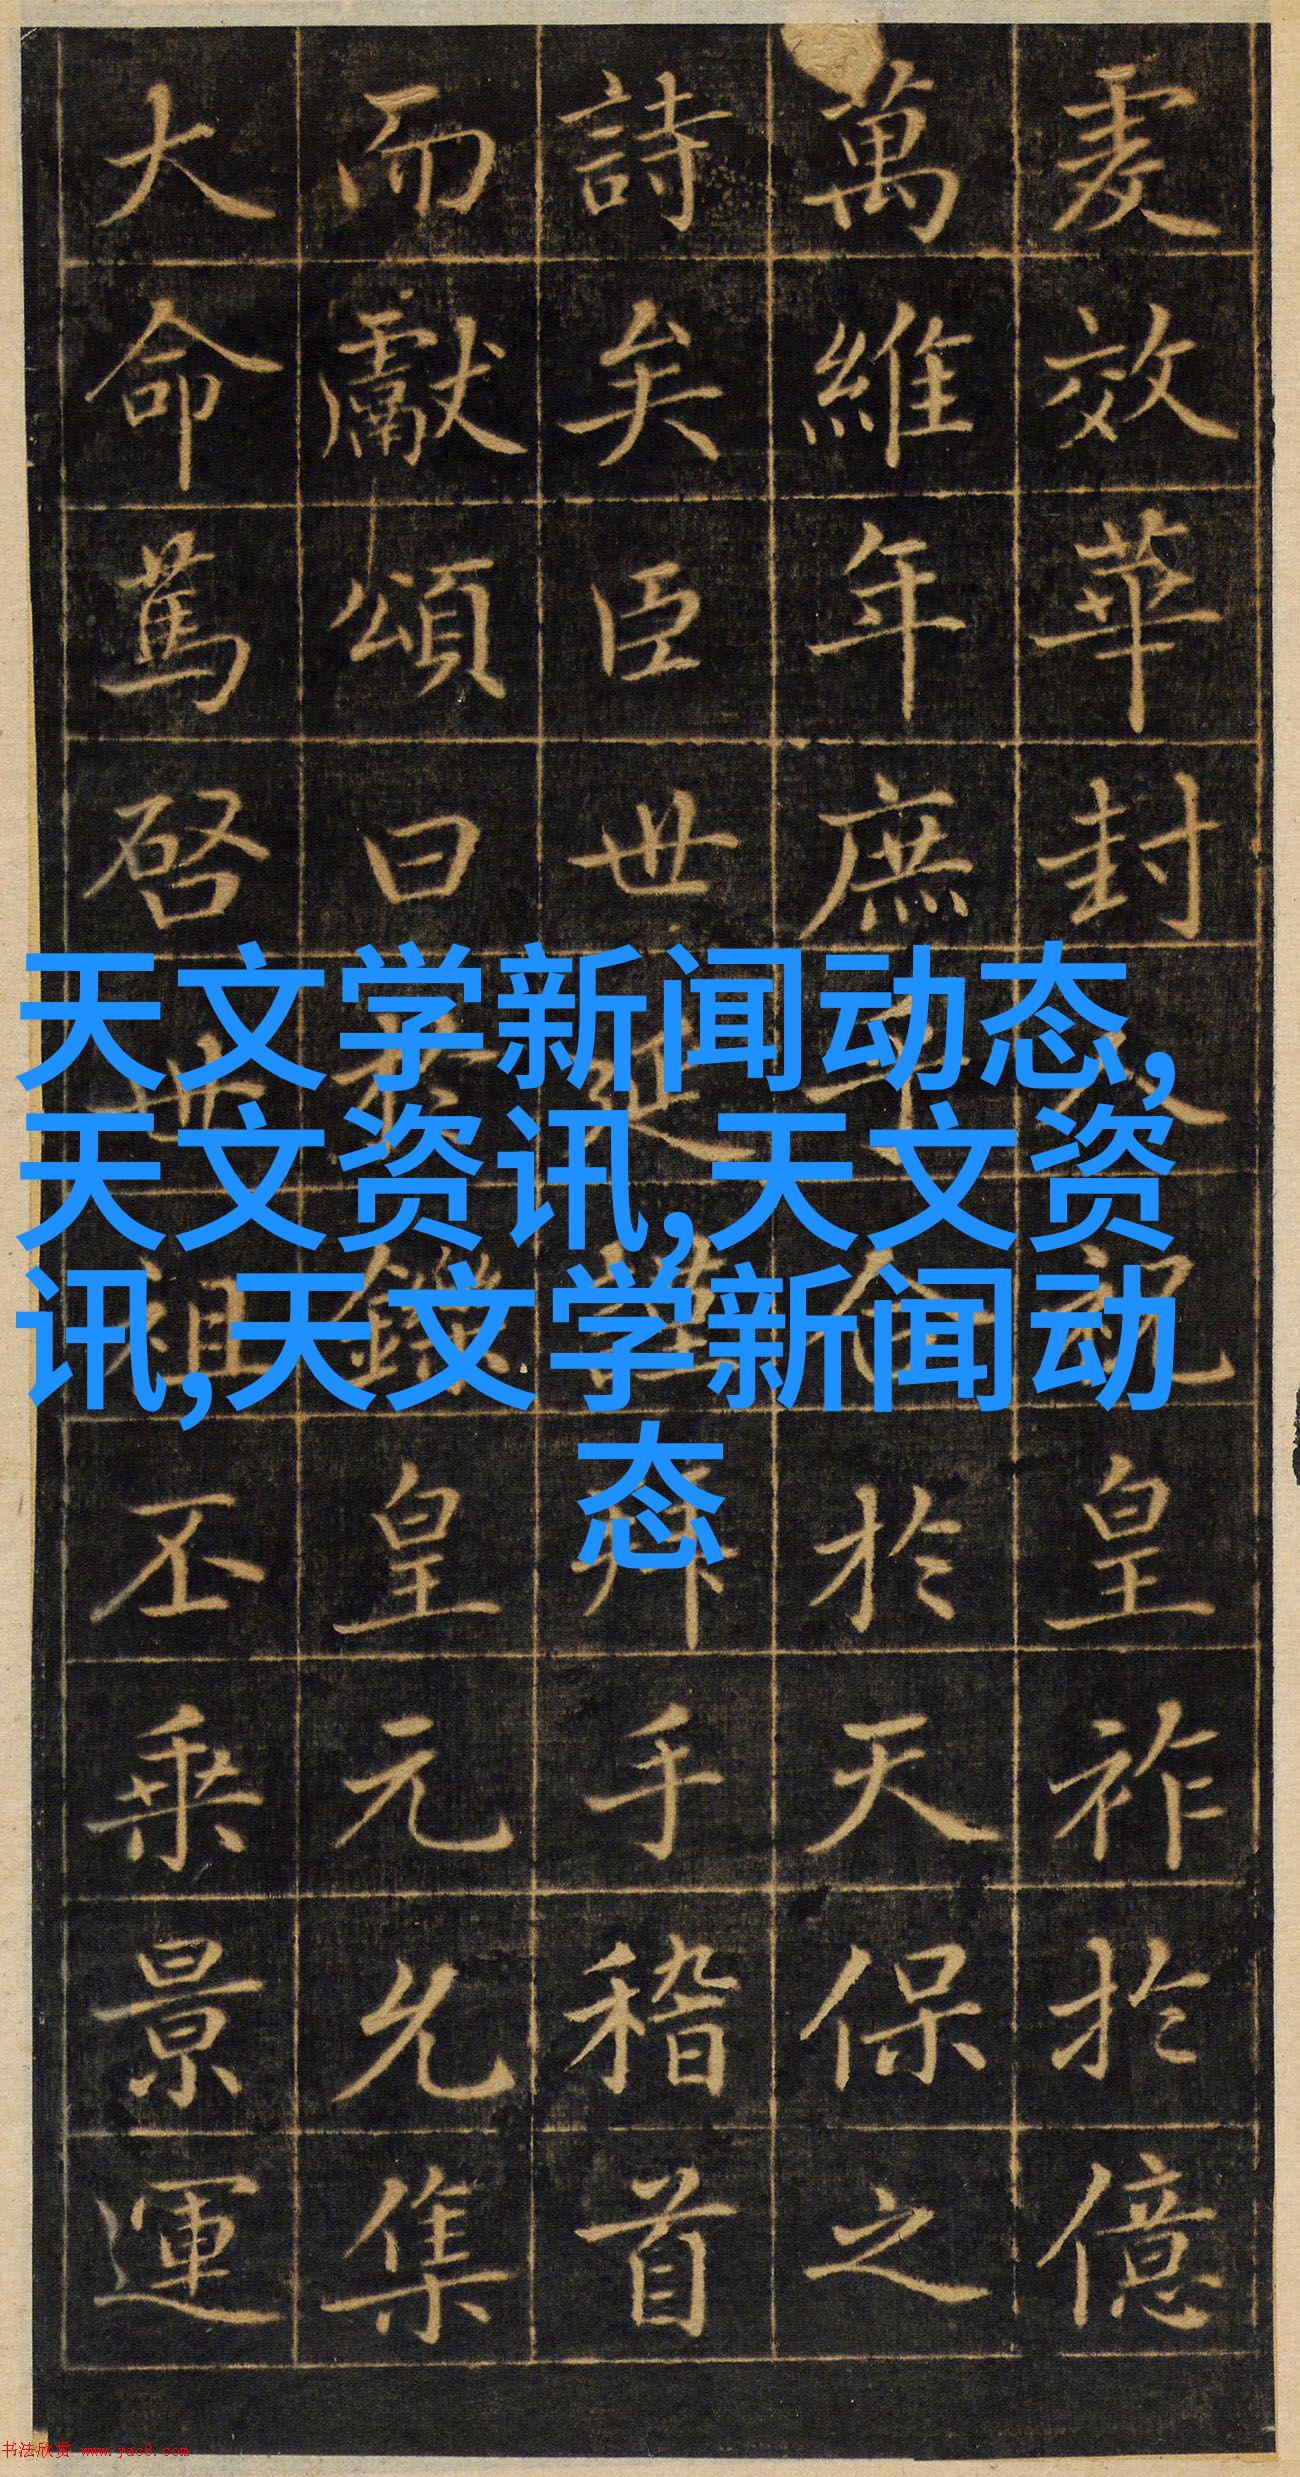 虔效華封祝皇祚於億
萬維年庶合於天保之
詩矣臣世延謹拜手稽首
而獻頌曰於鑠皇元允集
大命篤啓世祖丕乘景運
天文学新闻动态,
天文资讯,天文资
讯,天文学新闻动
态
书法欣赏 www.yac8.com